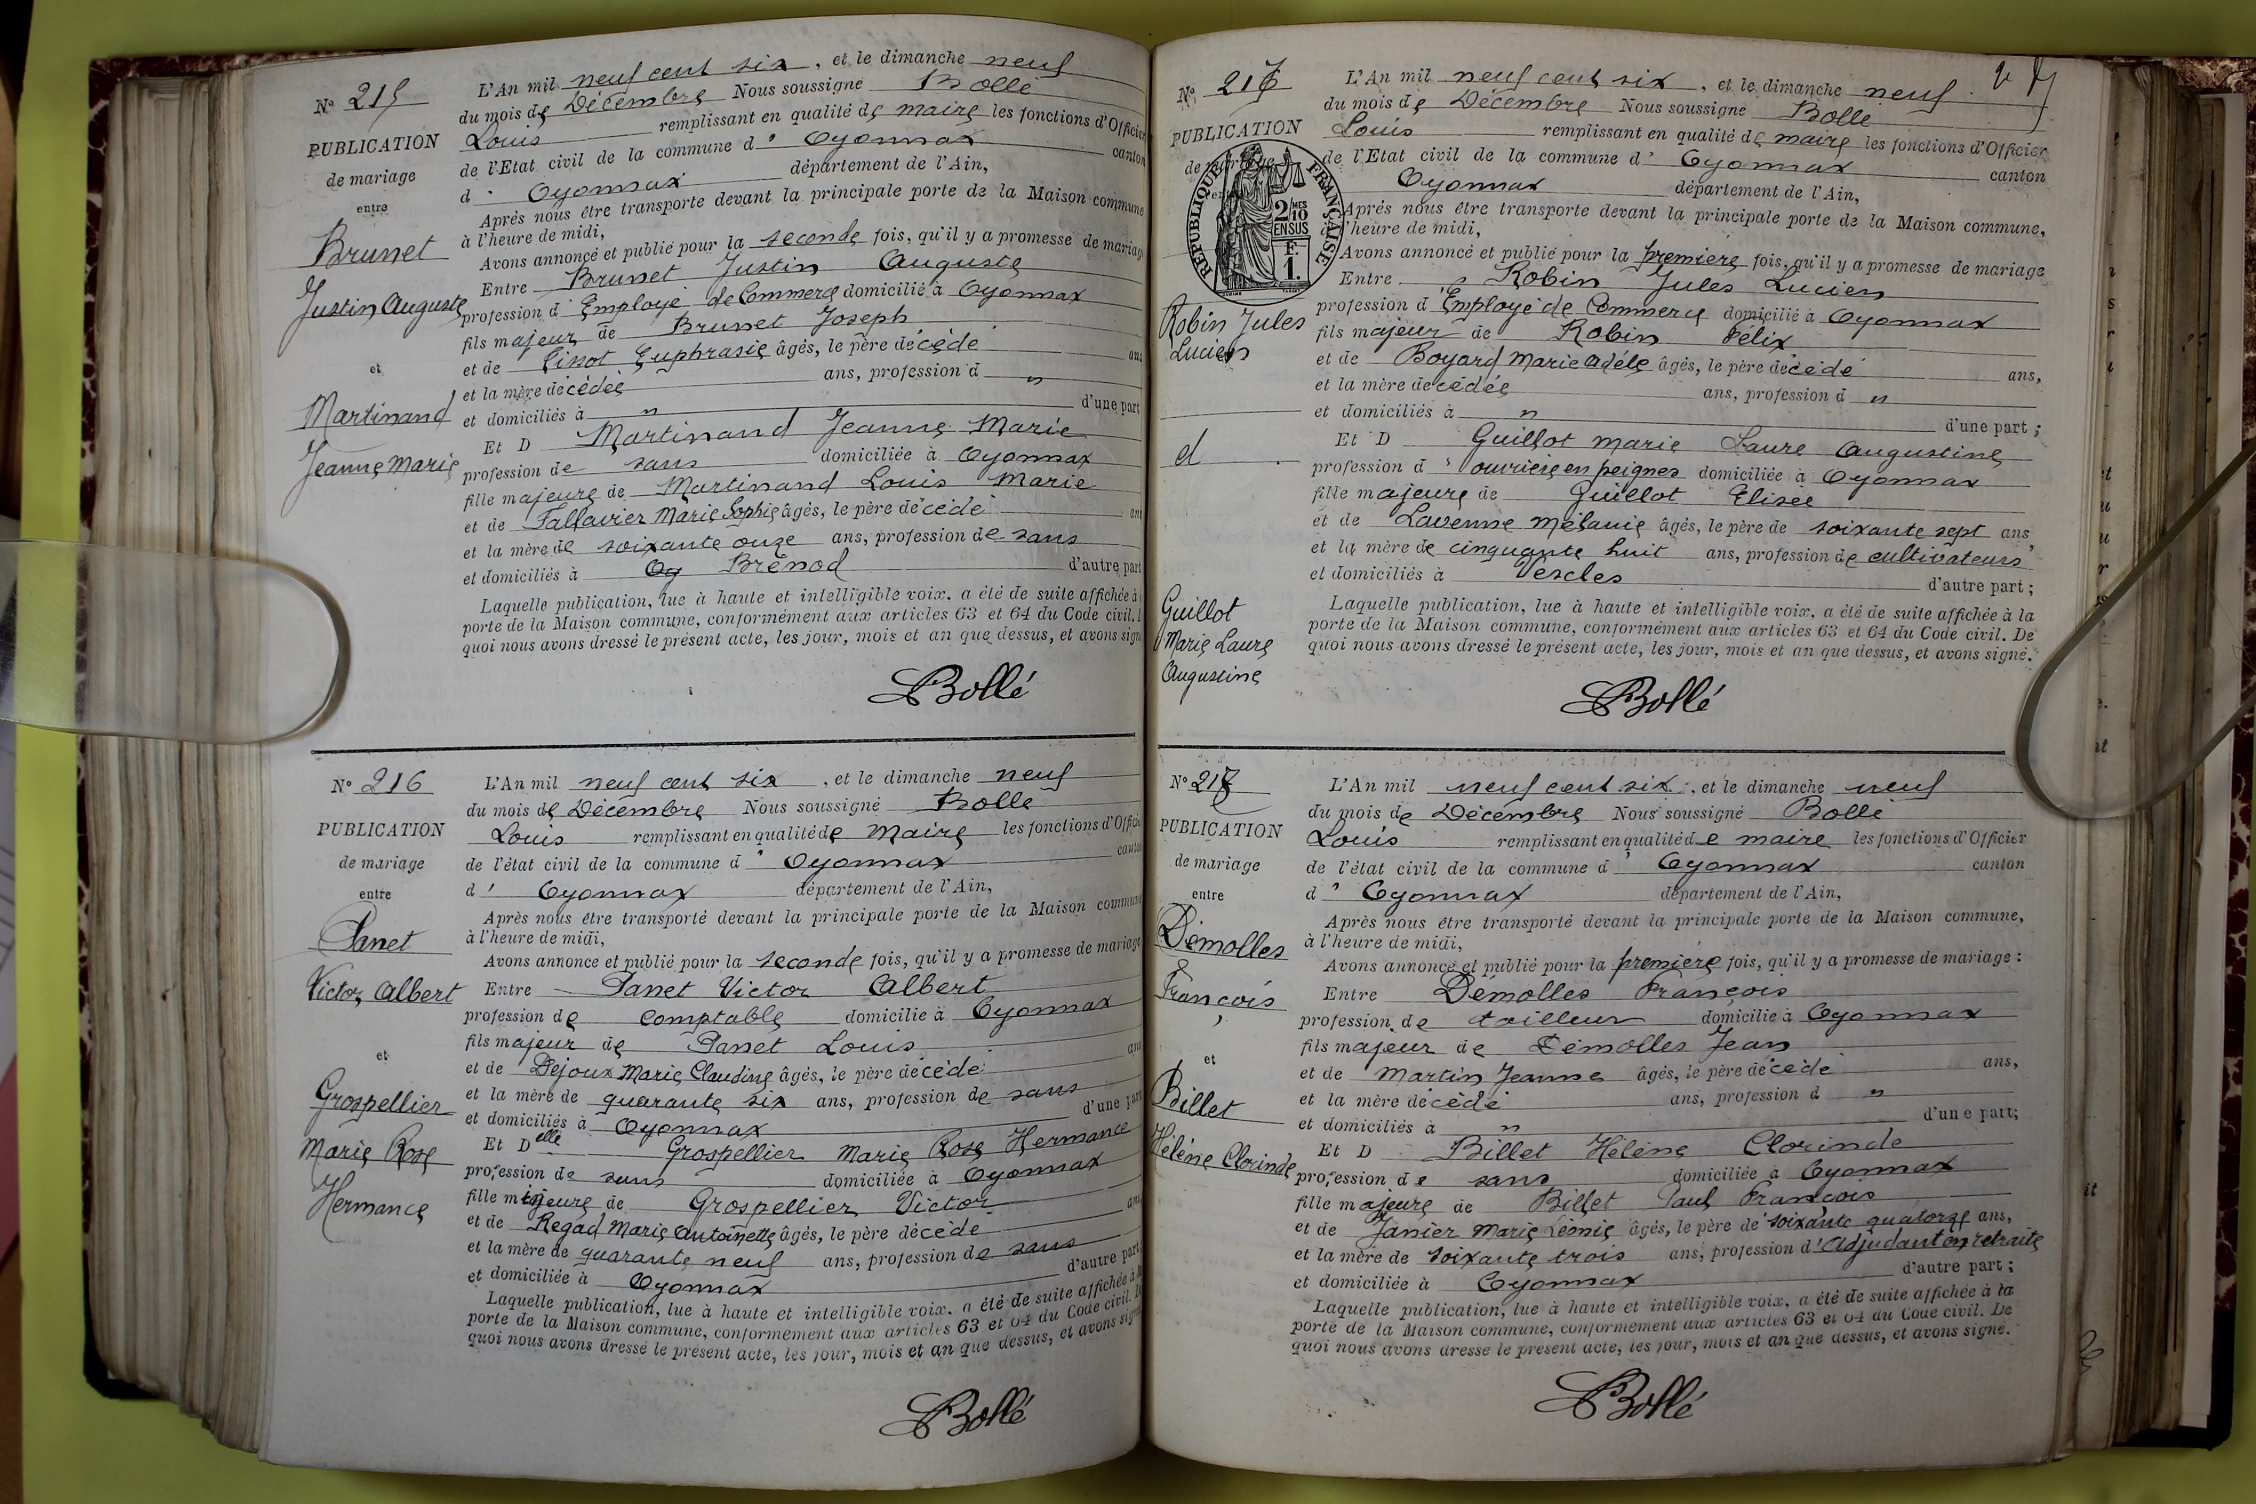 N° 215
PUBLICATION
de mariage
entre
Brunet
Justin Auguste
et
Martinand
Jeanne Marie
L'An mil neuf cent six, et le dimanche neuf
du mois de Décembre Nous soussigné Bollé
Louis remplissant en qualité de maire les fonctions d'Officier
de l'Etat civil de la commune d' Oyonnax canton
d' Oyonnax département de l'Ain,
Après nous être transporté devant la principale porte de la Maison commune
à l'heure de midi,
Avons annoncé et publié pour la seconde fois, qu'il y a promesse de mariage
Entre Brunet Justin Auguste
profession d' Employé de Commerce domicilié à Oyonnax
fils majeur de Brunet Joseph
et de Tissot Euphrasie âgés, le père décédé ans
et la mère décédée ans, profession d "
et domiciliés à " d'une part
Et D Martinand Jeanne Marie
profession de sans domiciliée à Oyonnax
fille majeure de Martinand Louis Marie
et de Fallavier Marie Sophie âgés, le père décédé ans
et la mère de soixante onze ans, profession de sans
et domiciliés à Oy Brénod d'autre part
Laquelle publication, lue à haute et intelligible voix, a été de suite affichée à
porte de la Maison commune, conformément aux articles 63 et 64 du Code civil.
quoi nous avons dressé le présent acte, les jour, mois et an que dessus, et avons signé
Bollé
N° 216
PUBLICATION
de mariage
entre
Panet
Victor Albert
et
Grospellier
Marie Rose
Hermance
L'An mil neuf cent six, et le dimanche neuf
du mois de Décembre Nous soussigné Bollé
Louis remplissant en qualité de Maire les fonctions d'Officier
de l'état civil de la commune d' Oyonnax canton
d' Oyonnax département de l'Ain,
Après nous être transporté devant la principale porte de la Maison commune
à l'heure de midi,
Avons annoncé et publié pour la seconde fois, qu'il y a promesse de mariage
Entre Panet Victor Albert
profession de comptable domicilié à Oyonnax
fils majeur de Panet Louis
et de Dejoux Marie Claudine âgés, le père décédé ans
et la mère de quarante six ans, profession de sans
et domiciliés à Oyonnax d'une part
Et Delle Grospellier Marie Rose Hermance
profession de sans domiciliée à Oyonnax
fille mineure de Grospellier Victor
et de Regad Marie Antoinette âgés, le père décédé ans
et la mère de quarante neuf ans, profession de sans
et domiciliée à Oyonnax d'autre part
Laquelle publication, lue à haute et intelligible voix, a été de suite affichée à la
porte de la Maison commune, conformément aux articles 63 et 64 du Code civil. De
quoi nous avons dressé le présent acte, les jour, mois et an que dessus, et avons signé
Bollé
N° 217
PUBLICATION
de mariage
entre
RÉPUBLIQUE FRANÇAISE
2/10 MES
EN SUS
1 F.
Robin Jules
Lucien
et
Guillot
Marie Laure
Augustine
L'An mil neuf cent six, et le dimanche neuf
du mois de Décembre Nous soussigné Bollé
Louis remplissant en qualité de maire les fonctions d'Officier
de l'Etat civil de la commune d' Oyonnax canton
Oyonnax département de l'Ain,
Après nous être transporté devant la principale porte de la Maison commune,
l'heure de midi,
Avons annoncé et publié pour la première fois, qu'il y a promesse de mariage
Entre Robin Jules Lucien
profession d' Employé de Commerce domicilié à Oyonnax
fils majeur de Robin Félix
et de Boyard Marie Adèle âgés, le père décédé ans,
et la mère décédée ans, profession d "
et domiciliés à " d'une part ;
Et D Guillot Marie Laure Augustine
profession d' ouvrière en peignes domiciliée à Oyonnax
fille majeure de Guillot Elisée
et de Lavenne Mélanie âgés, le père de soixante sept ans
et la mère de cinquante huit ans, profession de cultivateurs
et domiciliés à Vescles d'autre part ;
Laquelle publication, lue à haute et intelligible voix, a été de suite affichée à la
porte de la Maison commune, conformément aux articles 63 et 64 du Code civil. De
quoi nous avons dressé le présent acte, les jour, mois et an que dessus, et avons signé.
Bollé
N° 218
PUBLICATION
de mariage
entre
Démolles
François
et
Billet
Hélène Clorinde
L'An mil neuf cent six, et le dimanche neuf
du mois de Décembre Nous soussigné Bollé
Louis remplissant en qualité de maire les fonctions d'Officier
de l'état civil de la commune d' Oyonnax canton
d' Oyonnax département de l'Ain,
Après nous être transporté devant la principale porte de la Maison commune,
à l'heure de midi,
Avons annoncé et publié pour la première fois, qu'il y a promesse de mariage :
Entre Démolles François
profession de tailleur domicilié à Oyonnax
fils majeur de Démolles Jean
et de Martin Jeanne âgés, le père décédé ans,
et la mère décédé ans, profession d "
et domiciliés à " d'une part;
Et D Billet Hélène Clorinde
profession de sans domiciliée à Oyonnax
fille majeure de Billet Paul François
et de Janier Marie Léonie âgés, le père de soixante quatorze ans,
et la mère de soixante trois ans, profession d' Adjudant en retraite
et domiciliée à Oyonnax d'autre part ;
Laquelle publication, lue à haute et intelligible voix, a été de suite affichée à la
porte de la Maison commune, conformément aux articles 63 et 64 du Code civil. De
quoi nous avons dressé le présent acte, les jour, mois et an que dessus, et avons signé.
Bollé